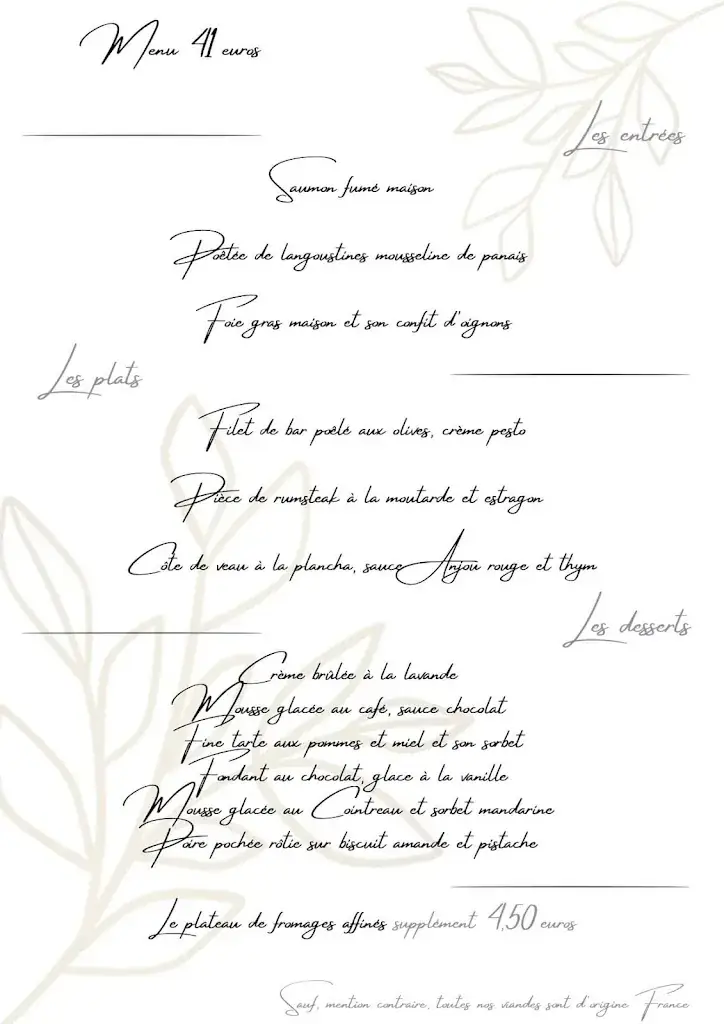 Menu 41 euros
Les entrées
Saumon fumé maison
Poêtée de langoustines mousseline de panais
Foie gras maison et son confit d'oignons
Les plats
Filet de bar poêlé aux olives, crème pesto
Pièce de rumsteak à la moutarde et estragon
Côte de veau à la plancha, sauce Anjou rouge et thym
Les desserts
Crème brûlée à la lavande
Mousse glacée au café, sauce chocolat
Fine tarte aux pommes et miel et son sorbet
Fondant au chocolat, glace à la vanille
Mousse glacée au Cointreau et sorbet mandarine
Poire pochée rôtie sur biscuit amande et pistache
Le plateau de fromages affinés supplément 4,50 euros
Sauf, mention contraire, toutes nos viandes sont d'origine France